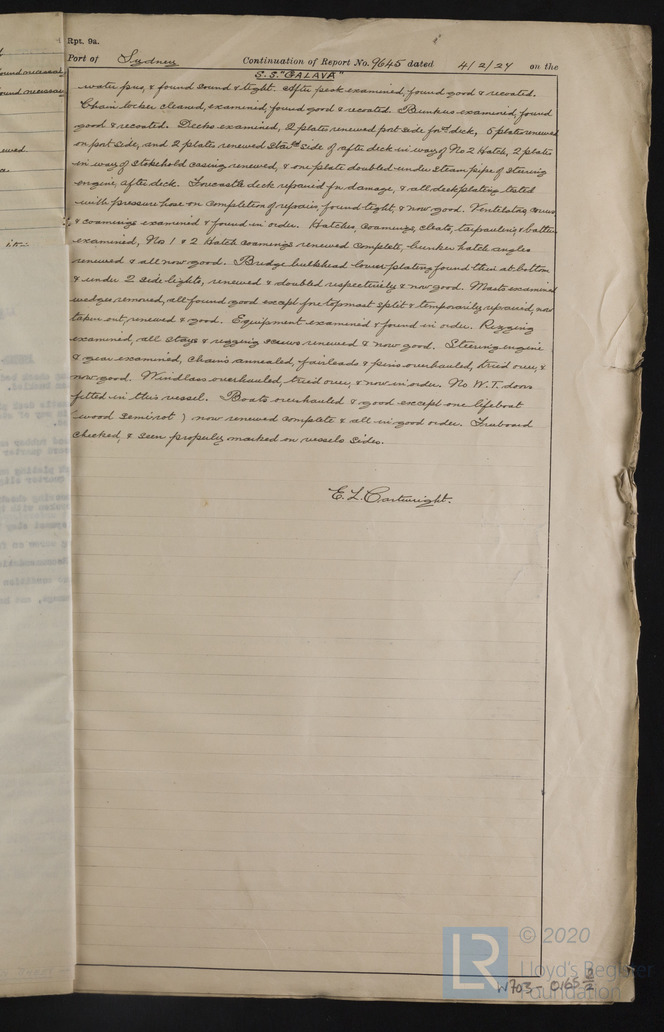 Rpt. 9a.
Port of Sydney Continuation of Report No. 9645 dated 4/2/24 on the
S.S. "GALAVA"
water pres, & found sound & tight. After peak examined, found good & recoated.
Chain locker cleaned, examined, found good & recoated. Bunkers examined, found
good & recoated. Decks examined, 2 plates renewed port side for'd deck, 5 plates renewed
on port side, and 2 plates renewed Starb'd side of after deck in way of No 2 Hatch, 2 plates
in way of stokehold casing renewed, & one plate doubled under steam pipe of steering
engine, after deck. Forecastle deck repaired for damage, & all deck plating tested
with pressure hose on completion of repairs, found tight, & now good. Ventilators
& coamings examined & found in order. Hatches, coamings, cleats, tarpaulins & batten
examined, No 1 & 2 Hatch coamings renewed complete, bunker hatch angles
renewed & all now good. Bridge bulkhead lower plating found thin at bottom
& under 2 side lights, renewed & doubled respectively & now good. Masts examined
wedges removed, all found good except fore topmast split & temporarily repaired, now
taken out, renewed & good. Equipment examined & found in order. Rigging
examined, all stays & rigging screws renewed & now good. Steering engine
& gear examined, chains annealed, fairleads & pins overhauled, tried over, &
now good. Windlass overhauled, tried over, & now in order. No W.T. doors
fitted in this vessel. Boats overhauled & good except one lifeboat
(wood semi rot) now renewed complete & all in good order. Freeboard
checked, & seen properly marked on vessels sides.
E. L. Cartwright.
© 2020
LR
Lloyd's Register
Foundation
W703 - 0165 2/2